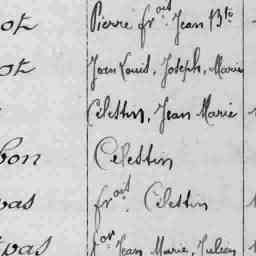 ot Pierre frois Jean Bte
ot Jean Louis, Joseph, Marie
Célestin, Jean Marie
bon Célestin
pas frois Célestin
pas Jean Marie, Julien